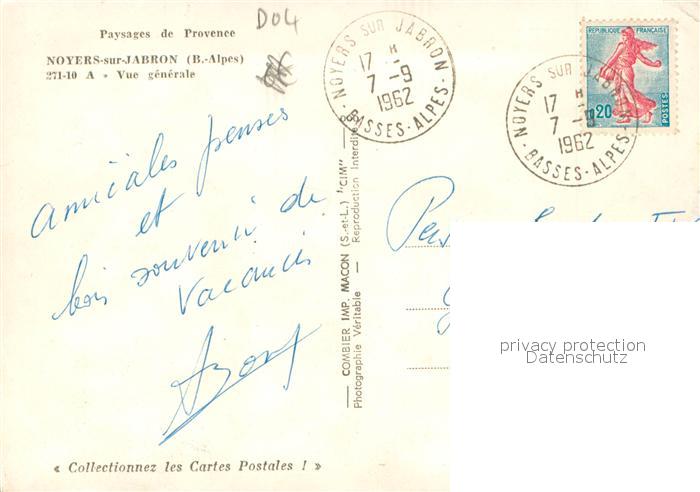 Paysages de Provence
NOYERS-sur-JABRON (B.-Alpes)
271-10 A - Vue générale
D04
NOYERS SUR JABRON
17 H
7 -9
1962
BASSES-ALPES
REPUBLIQUE FRANÇAISE
0,20
POSTES
NOYERS SUR JABRON
17 H
7 -9
1962
BASSES-ALPES
Amicales penses
et
bon souvenir de
vacances
COMBIER IMP. MACON (S.-et-L.) "CIM"
Photographie Véritable — Reproduction Interdite
privacy protection
Datenschutz
« Collectionnez les Cartes Postales ! »